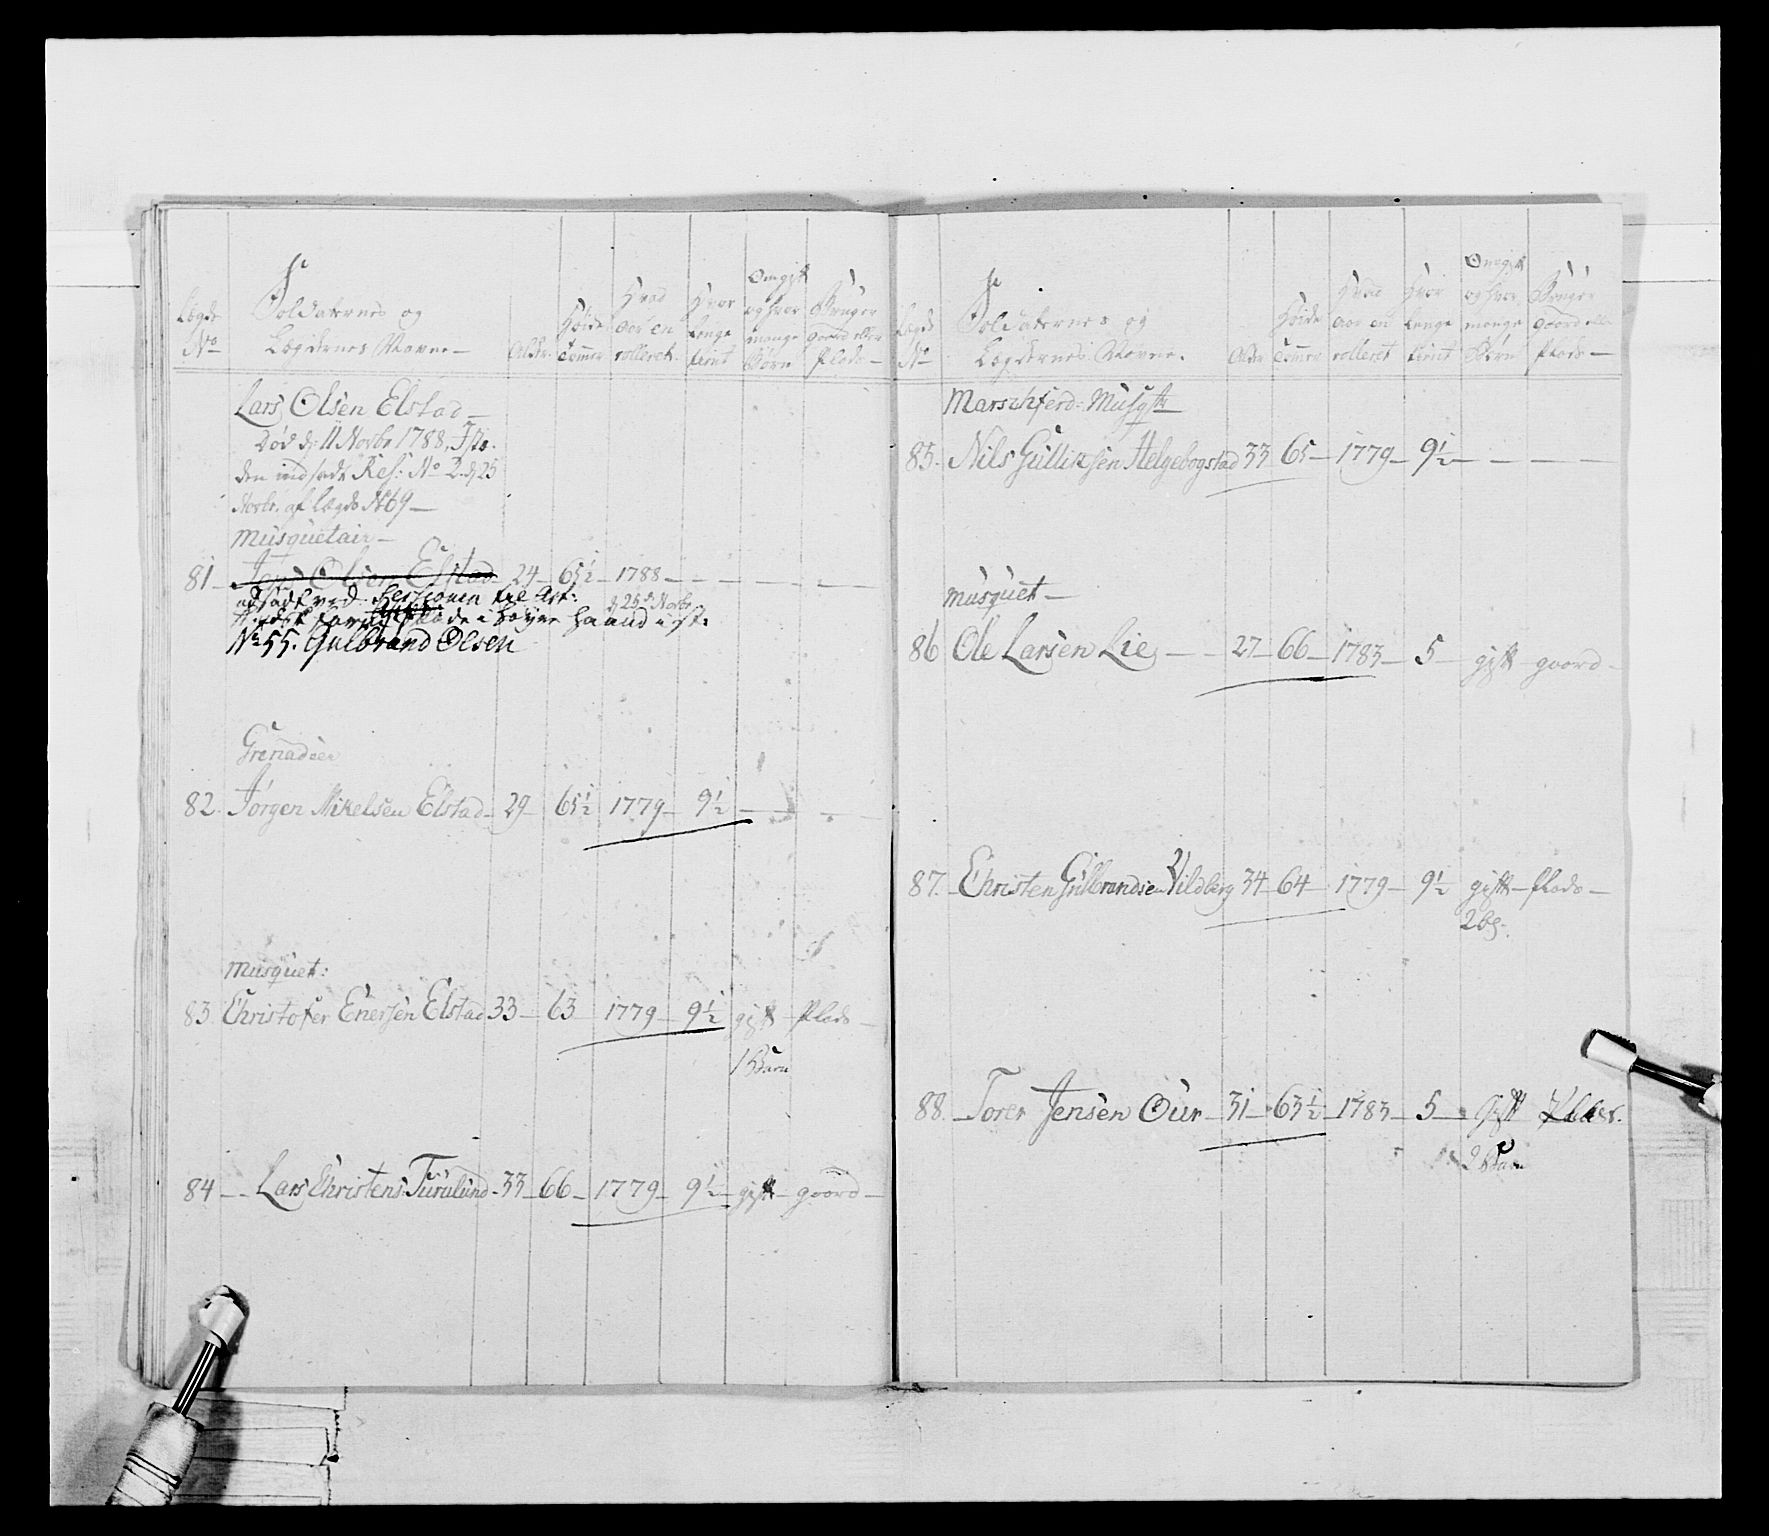 Lægds No
Soldaternes og Lægdernes Navne
Alder
Høide Tommer
Hvad Aar en rolleret
Hvor lenge tient
Om gift og hvor mange Børn
Bruger Gaard eller Plads
Lars Olsen Elstad
død d: 11 Novbr 1788, Iste.
den indsadt Res: No 2 d: 25
Novbr. af Lægds No 69
Musquetair
81 Olsen Elstad 24 65½ 1788
d: 25de Novbr
afsadt ved Sessionen til Art:
i høyre haand
No 55. Gulbrand Olsen
Grenadeer
82. Jørgen Mikelsen Elstad 29 65½ 1779 9½
Musquet:
83. Christofer Enersen Elstad 33 63 1779 9½ gift Plads
1 Barn
84 Lars Christens: Turulund 33 66 1779 9½ gift gaard
Lægds No
Soldaternes og Lægdernes Navne.
Alder
Høide Tommer
Hvad Aar en rolleret
Hvor lenge tient
Om gift og hvor mange Børn
Bruger Gaard eller Plads
Marschferd: Musqt:
85. Nils Gulliksen Helgebogstad 33 65 1779 9½
Musquet
86 Ole Larsen Lie 27 66 1783 5 gift gaard
87. Christen Gulbrandsen Vildberg 34 64 1779 9½ gift Plads
2 b
88. Torer Jensen Our 31 63½ 1783 5 Gift
2 Barn